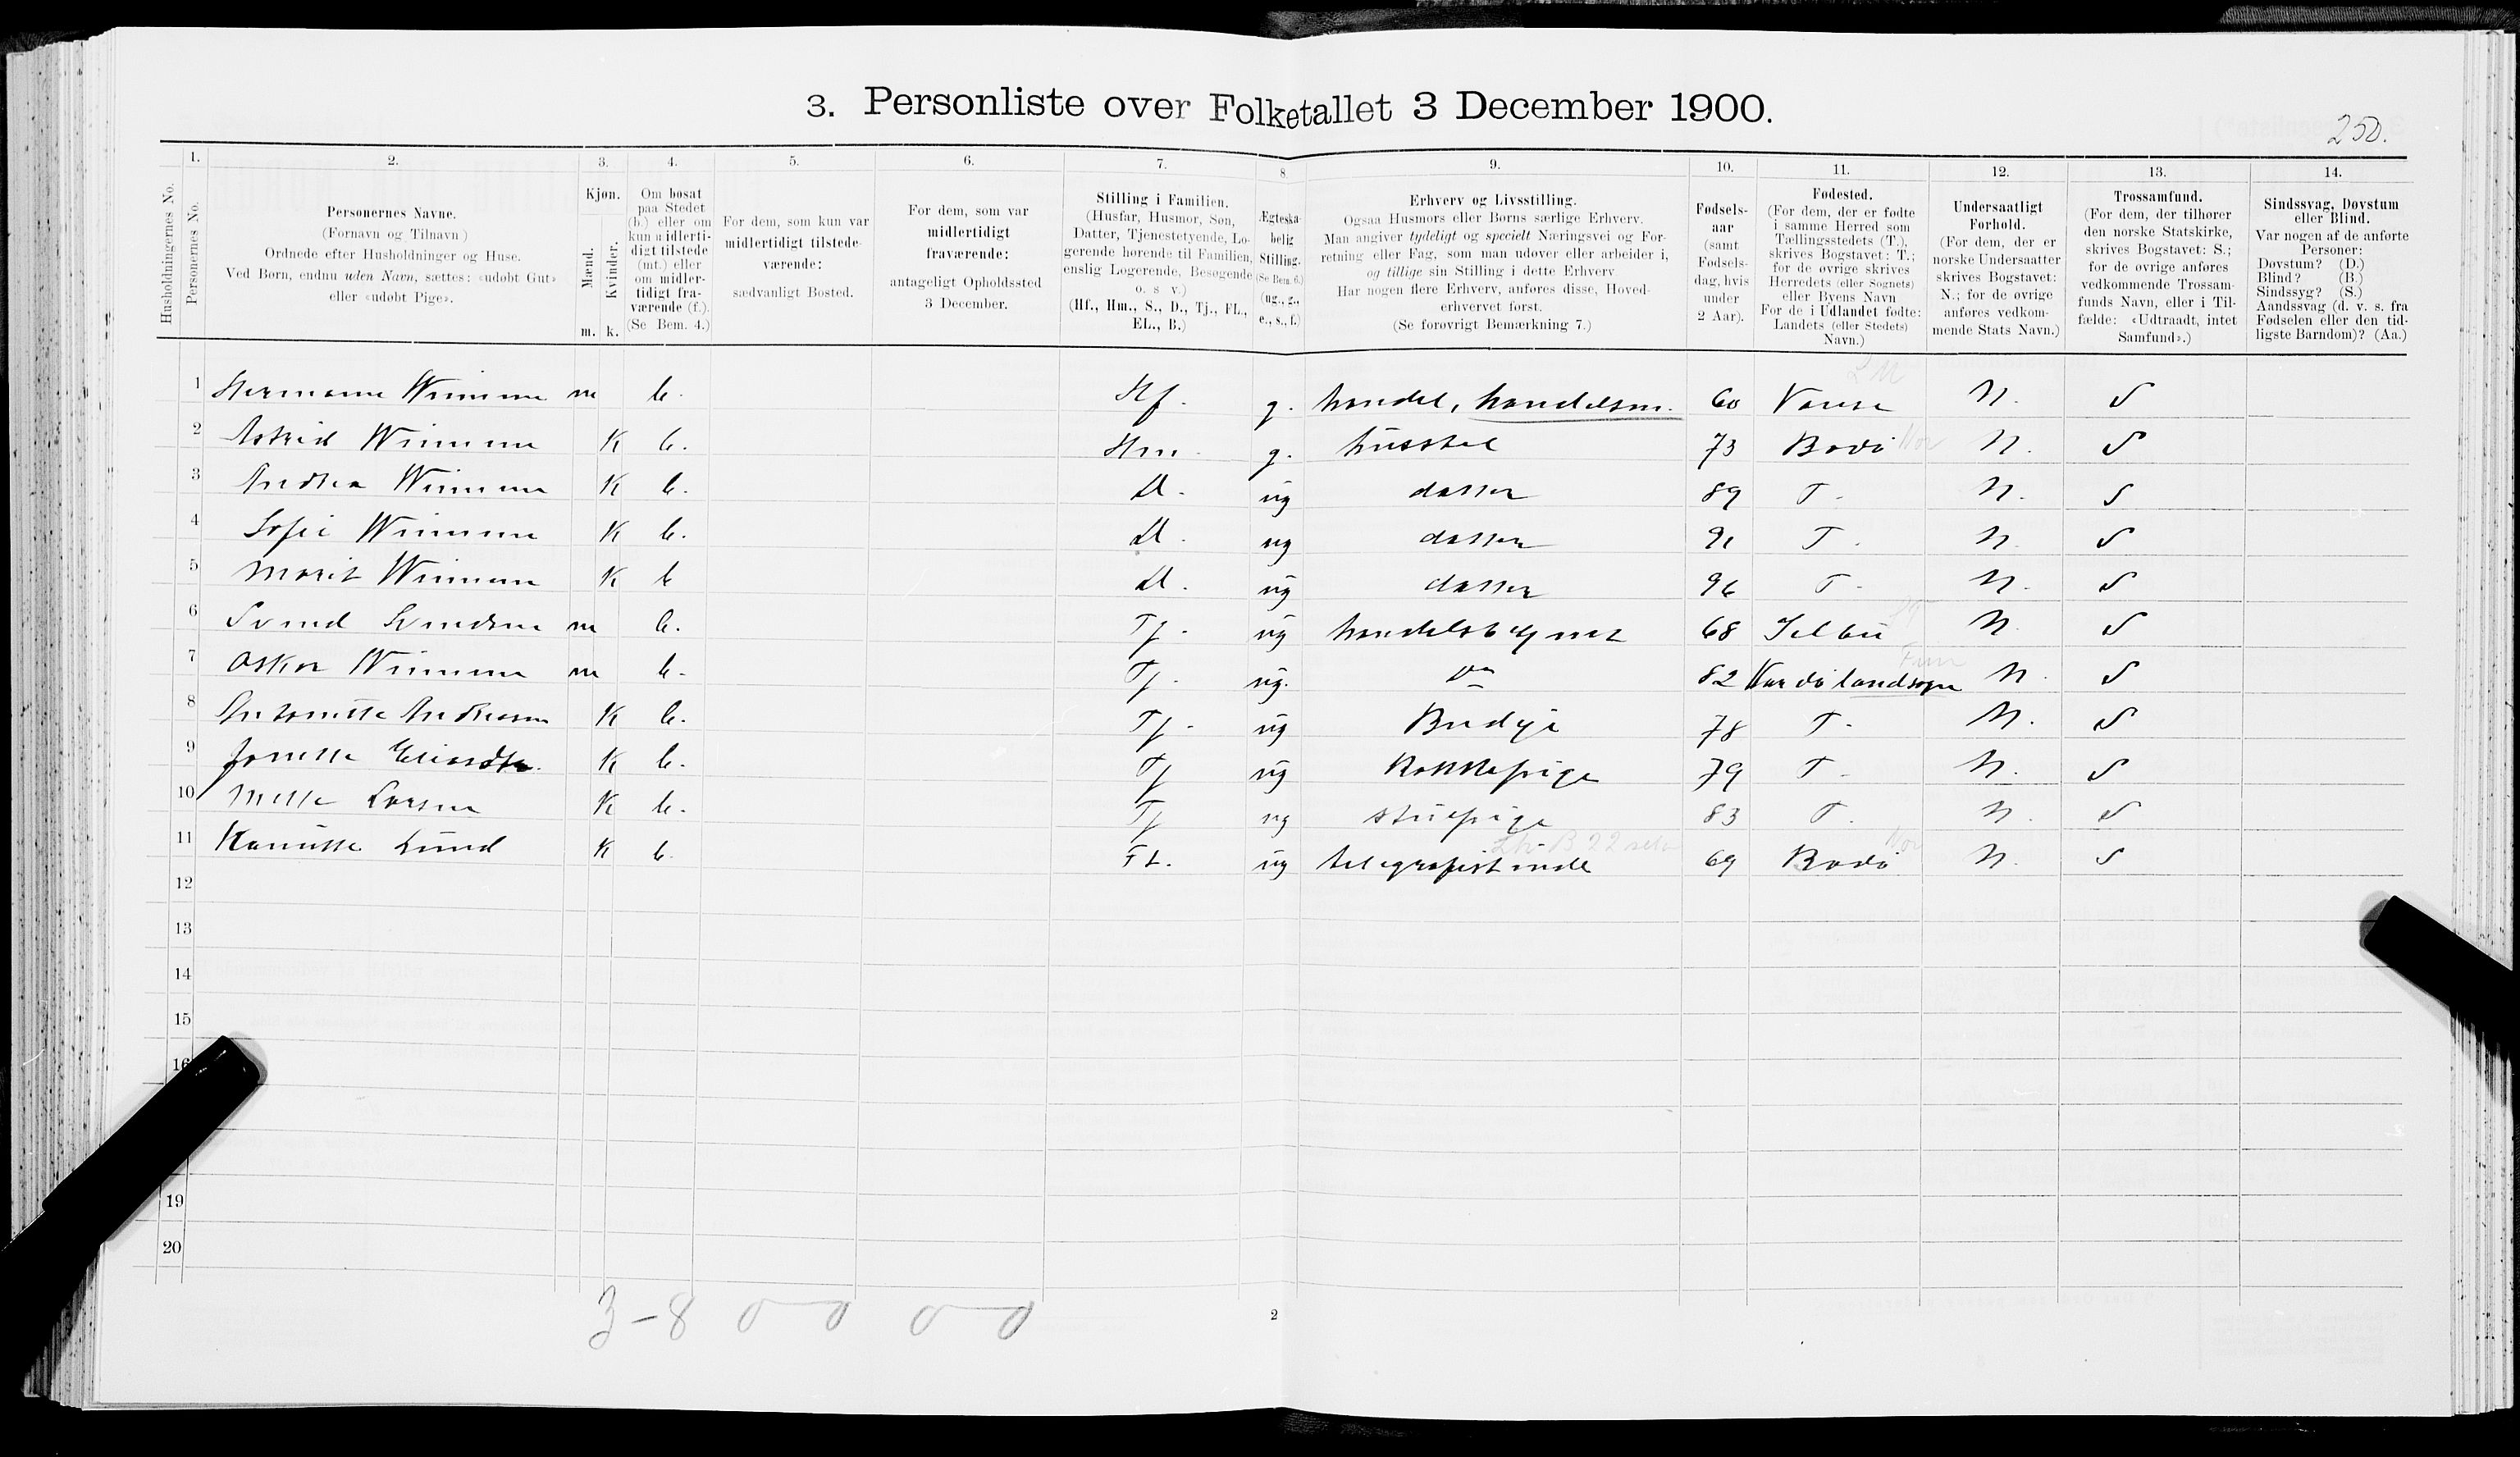 3. Personliste over Folketallet 3 December 1900.
250.
Husholdningernes No.
1. Personernes No.
2. Personernes Navne. (Fornavn og Tilnavn) Ordnede efter Husholdninger og Huse. Ved Børn, endnu uden Navn, sættes: «udøbt Gut» eller «udøbt Pige».
3. Kjøn. Mænd. m. Kvinder. k.
4. Om bosat paa Stedet (b.) eller om kun midlertidigt tilstede (mt.) eller om midlertidigt fraværende (f.). (Se Bem. 4.)
5. For dem, som kun var midlertidigt tilstedeværende: sædvanligt Bosted.
6. For dem, som var midlertidigt fraværende: antageligt Opholdssted 3 December.
7. Stilling i Familien. (Husfar, Husmor, Søn, Datter, Tjenestetyende, Logerende hørende til Familien, enslig Logerende, Besøgende o. s v.) (Hf., Hm., S., D., Tj., FL., EL., B.)
8. Ægteskabelig Stilling. (Se Bem. 6.) (ug., g., e., s., f.)
9. Erhverv og Livsstilling. Ogsaa Husmors eller Børns særlige Erhverv. Man angiver tydeligt og specielt Næringsvei og Forretning eller Fag, som man udøver eller arbeider i, og tillige sin Stilling i dette Erhverv. Har nogen flere Erhverv, anføres disse, Hovederhvervet først. (Se forøvrigt Bemærkning 7.)
10. Fødselsaar (samt Fødselsdag, hvis under 2 Aar).
11. Fødested. (For dem, der er fødte i samme Herred som Tællingsstedets (T.), skrives Bogstavet: T.; for de øvrige skrives Herredets (eller Sognets) eller Byens Navn For de i Udlandet fødte: Landets (eller Stedets) Navn.)
12. Undersaatligt Forhold. (For dem, der er norske Undersaatter skrives Bogstavet: N.; for de øvrige anføres vedkommende Stats Navn.)
13. Trossamfund. (For dem, der tilhører den norske Statskirke, skrives Bogstavet: S.; for de øvrige anføres vedkommende Trossamfunds Navn, eller i Tilfælde: «Udtraadt, intet Samfund».)
14. Sindssvag, Døvstum eller Blind. Var nogen af de anførte Personer: Døvstum? (D.) Blind? (B.) Sindssyg? (S.) Aandssvag (d. v. s. fra Fødselen eller den tidligste Barndom)? (Aa.)
1 Hermann m b. Hf. g. handel, handelsm. 60 Vanse N. S
2 Astrid K b. Hm. g. husstel 73 Bodø N. S
3 Andrea K b. D. ug datter 89 T. N. S
4 Sofie K b. D. ug datter 91 T. N. S
5 Marit K b D. ug datter 96 T. N. S
6 Svend Svendsen m b. Tj. ug handelsbetjent 68 Selbu N. S
7 Oskar m b. Tj. ug. Do 82 Vardø landsogn N. S
8 Antonette Andreasen K b. Tj. ug Budeje 78 T. N. S
9 Jonette K b. Tj ug Kokkepige 79 T. N. S
10 Mette Larsen K b. Tj ug stuepige 83 T. N. S
11 Lund K b. FL. ug telegrafistinde 69 Bodø N. S
12
13
14
15
16
19
20
3-8 0-0 0-0
2